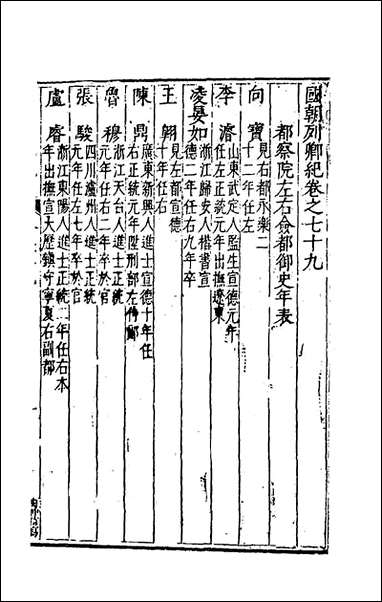 國朝列卿紀卷之七十九
都察院左右僉都御史年表
向寶
見右都永樂二
十二年任左
李濬
山東武定人監生宣德元年
任左正統元年出撫遼東
凌晏如
浙江歸安人楷書宣
德二年任右九年卒
王翱
見左都宣德
十年任右
陳鼎
廣東新興人進士宣德十年任
右正統元年陞刑部左侍郎
魯穆
浙江天台人進士正統
元年任右二年卒於官
張駿
四川瀘州人進士正統
元年任左七年卒於官
盧睿
浙江東陽人進士正統二年任右本
年出撫宣大歷鎮守寧夏右副都